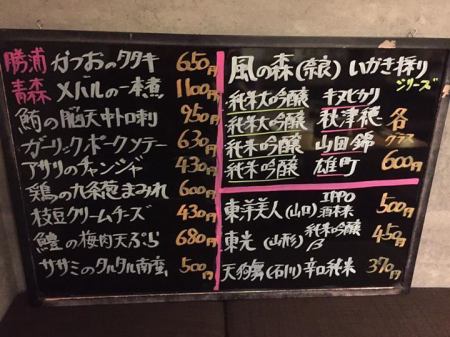 勝浦 かつおのタタキ 650円
青森 メバルの一本煮 1100円
鮪の脳天中トロ刺 950円
ガーリックポークソテー 630円
アサリのチャンジャ 430円
鶏の九条葱まみれ 600円
枝豆クリームチーズ 430円
鱧の梅肉天ぷら 680円
ササミのタルタル南蛮 500円
風の森(奈良) いかき採り
シリーズ
純米大吟醸 キヌヒカリ
純米大吟醸 秋津穂
純米吟醸 山田錦
純米吟醸 雄町
各
グラス
600円
東洋美人(山口) IPPO 500円
東光(山形) 純米吟醸 450円
天狗舞(石川) 辛口純米 370円